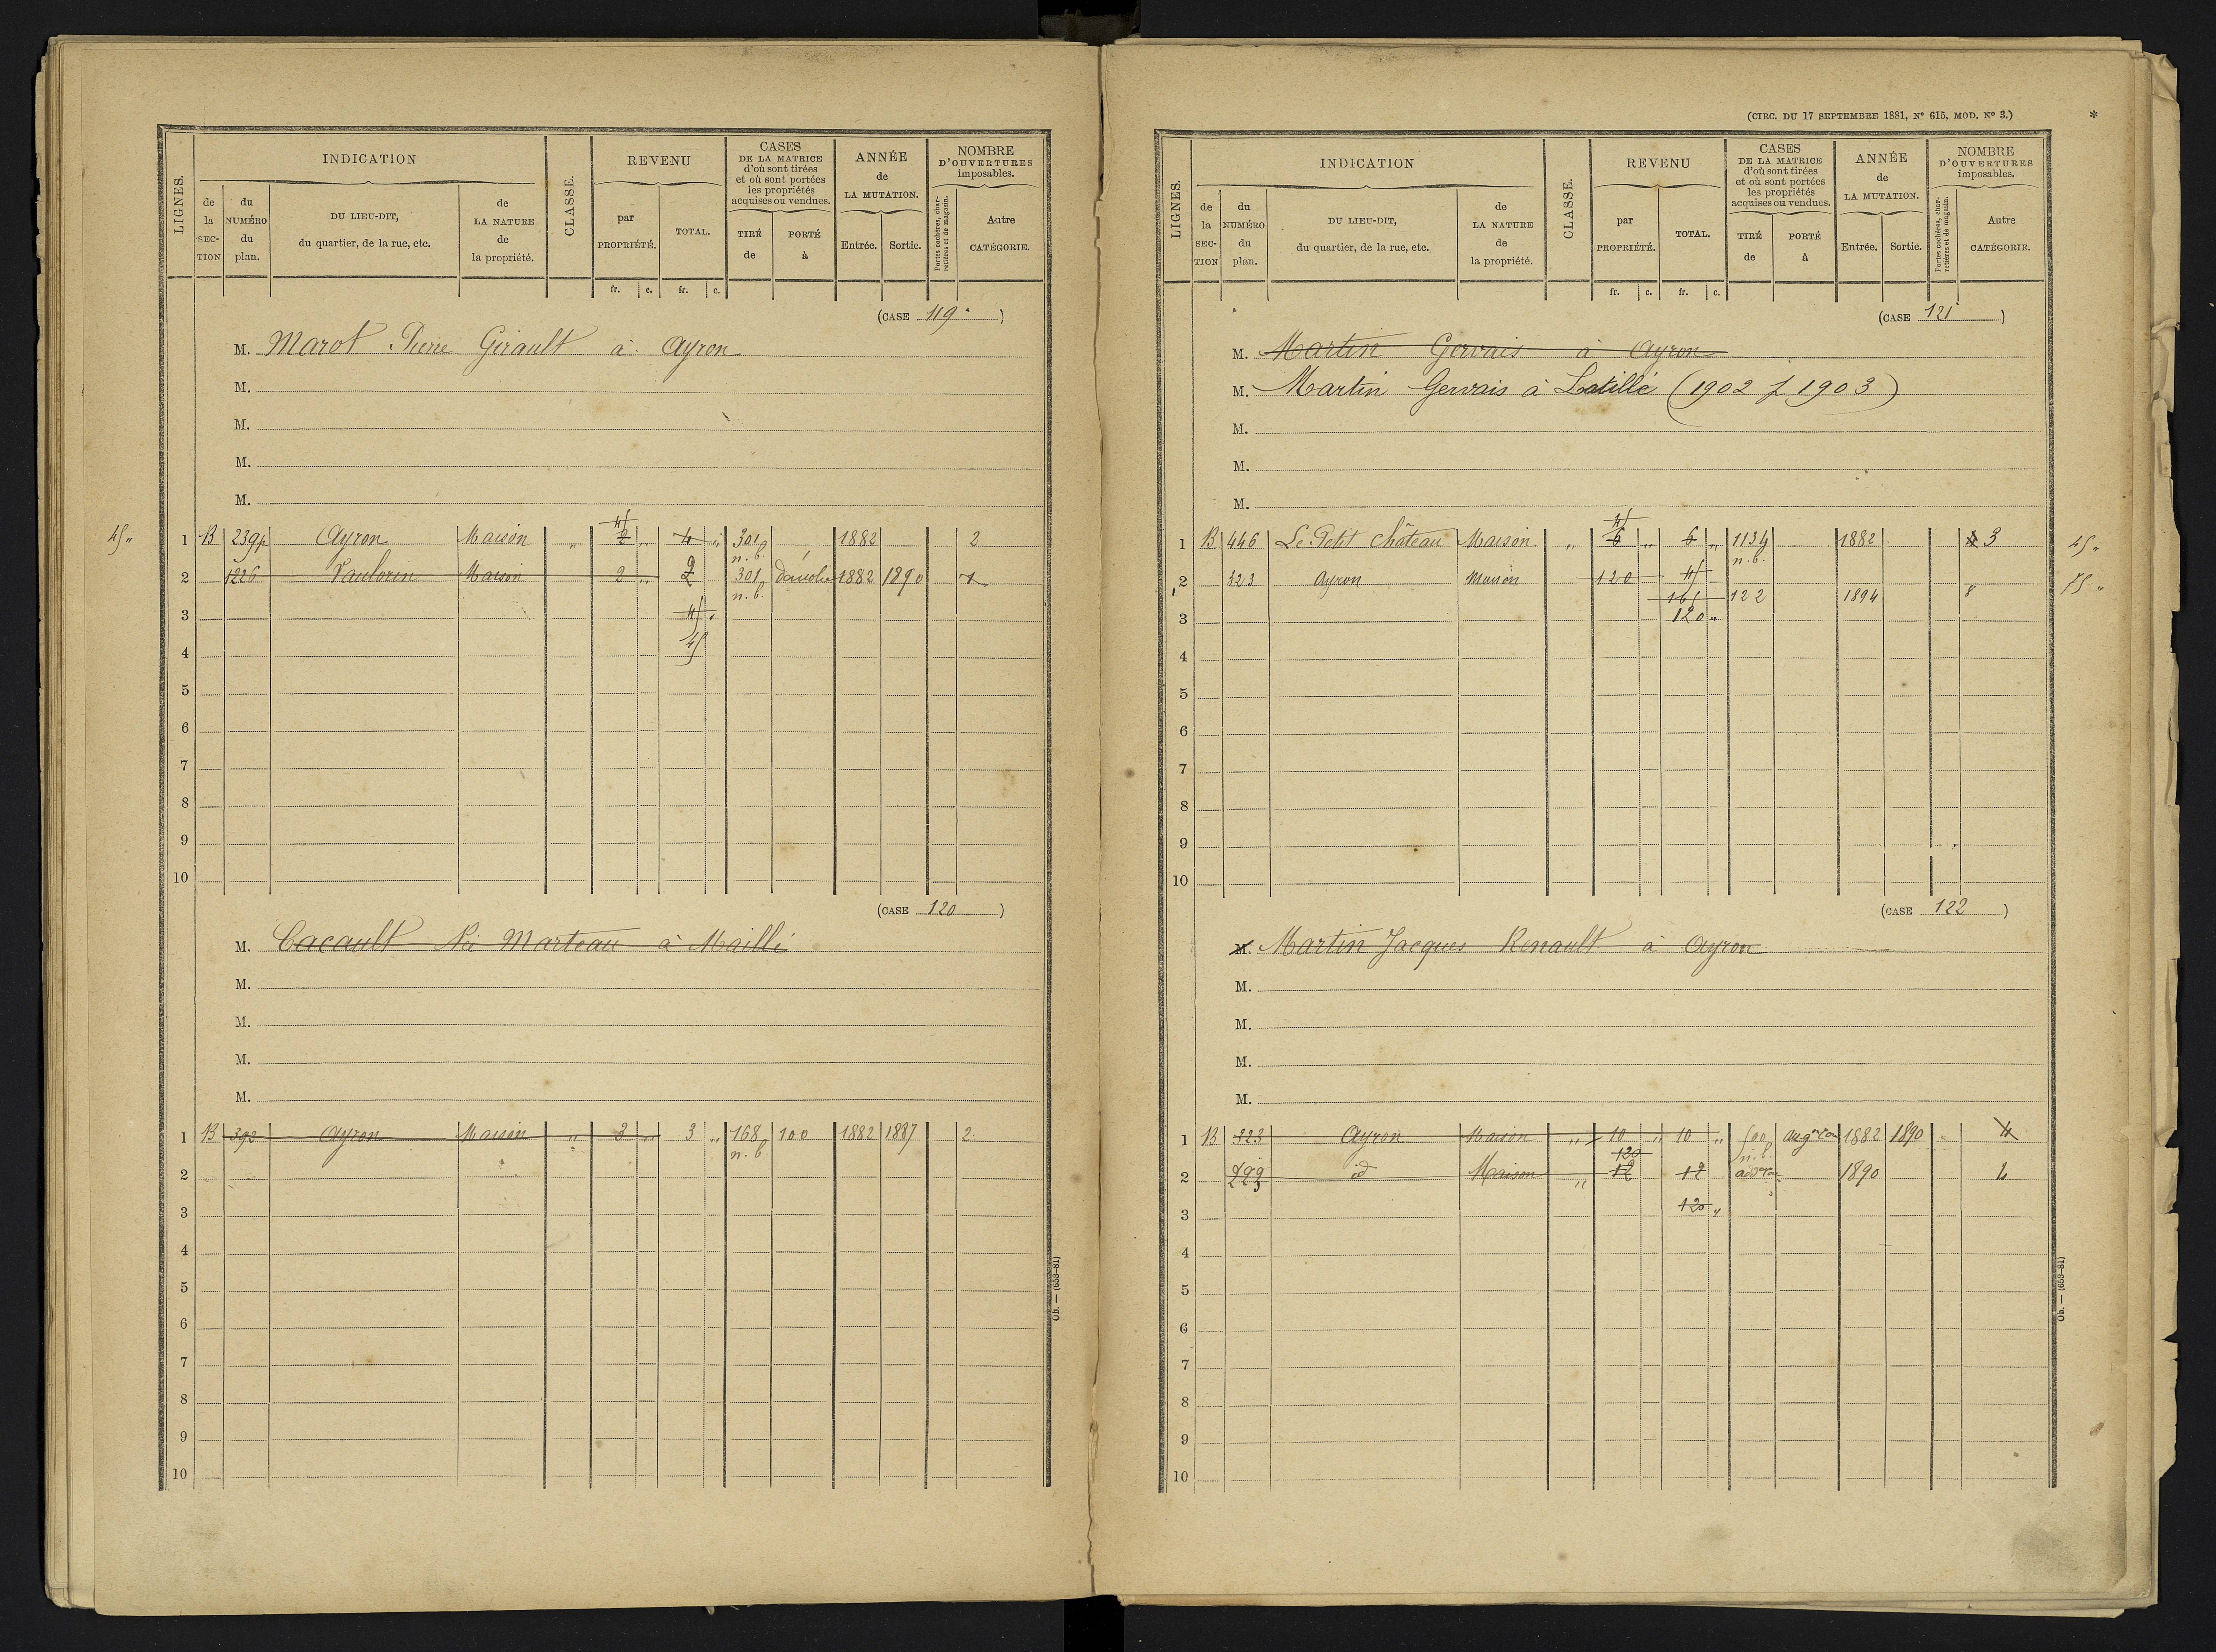 LIGNES. INDICATION CLASSE. REVENU CASES DE LA MATRICE d'où sont tirées et où sont portées les propriétés acquises ou vendues. ANNÉE de LA MUTATION. NOMBRE D'OUVERTURES imposables.
de la SECTION du NUMÉRO du plan. DU LIEU-DIT, du quartier, de la rue, etc. de LA NATURE de la propriété. par PROPRIÉTÉ. TOTAL. TIRÉ de PORTÉ à Entrée. Sortie. Portes cochères, charretières et de magasin. Autre CATÉGORIE.
fr. c. fr. c.
(CASE 119)
M. Marot Pierre Girault à Ayron
M.
M.
M.
M.
45 "
1 B 239p Ayron Maison " 2 " 4 " 301 n.b. 1882 2
2 1226 Vaulorin Maison 2 " 2 301 n.b. Démolie 1882 1890 1
3 45 "
4 45
5
6
7
8
9
10
(CASE 120)
M. Cacault Né Marteau à Maillé
M.
M.
M.
M.
1 B 392 Ayron Maison " 3 " 3 " 168 n.b. 100 1882 1887 2
2
3
4
5
6
7
8
9
10
Ob. — (653-81)
(CIRC. DU 17 SEPTEMBRE 1881, N° 615, MOD. N° 3.) *
LIGNES. INDICATION CLASSE. REVENU CASES DE LA MATRICE d'où sont tirées et où sont portées les propriétés acquises ou vendues. ANNÉE de LA MUTATION. NOMBRE D'OUVERTURES imposables.
de la SECTION du NUMÉRO du plan. DU LIEU-DIT, du quartier, de la rue, etc. de LA NATURE de la propriété. par PROPRIÉTÉ. TOTAL. TIRÉ de PORTÉ à Entrée. Sortie. Portes cochères, charretières et de magasin. Autre CATÉGORIE.
fr. c. fr. c.
(CASE 121)
M. Martin Gervais à Ayron
M. Martin Gervais à Latillé (1902 f 1903)
M.
M.
M.
45
1 B 446 Le Petit Château Maison " 6 " 6 " 1134 n.b. 1882 3 45 "
2 323 Ayron Maison 120 45 122 1894 8 75 "
165
3 120 "
4
5
6
7
8
9
10
(CASE 122)
M. Martin Jacques Renault à Ayron
M.
M.
M.
M.
1 B 323 Ayron Maison " 10 " 10 " 500 n.b. augon 1882 1890 4
120
2 323 id Maison " 12 12 1890 4
3 120 "
4
5
6
7
8
9
10
Ob. — (653-81)